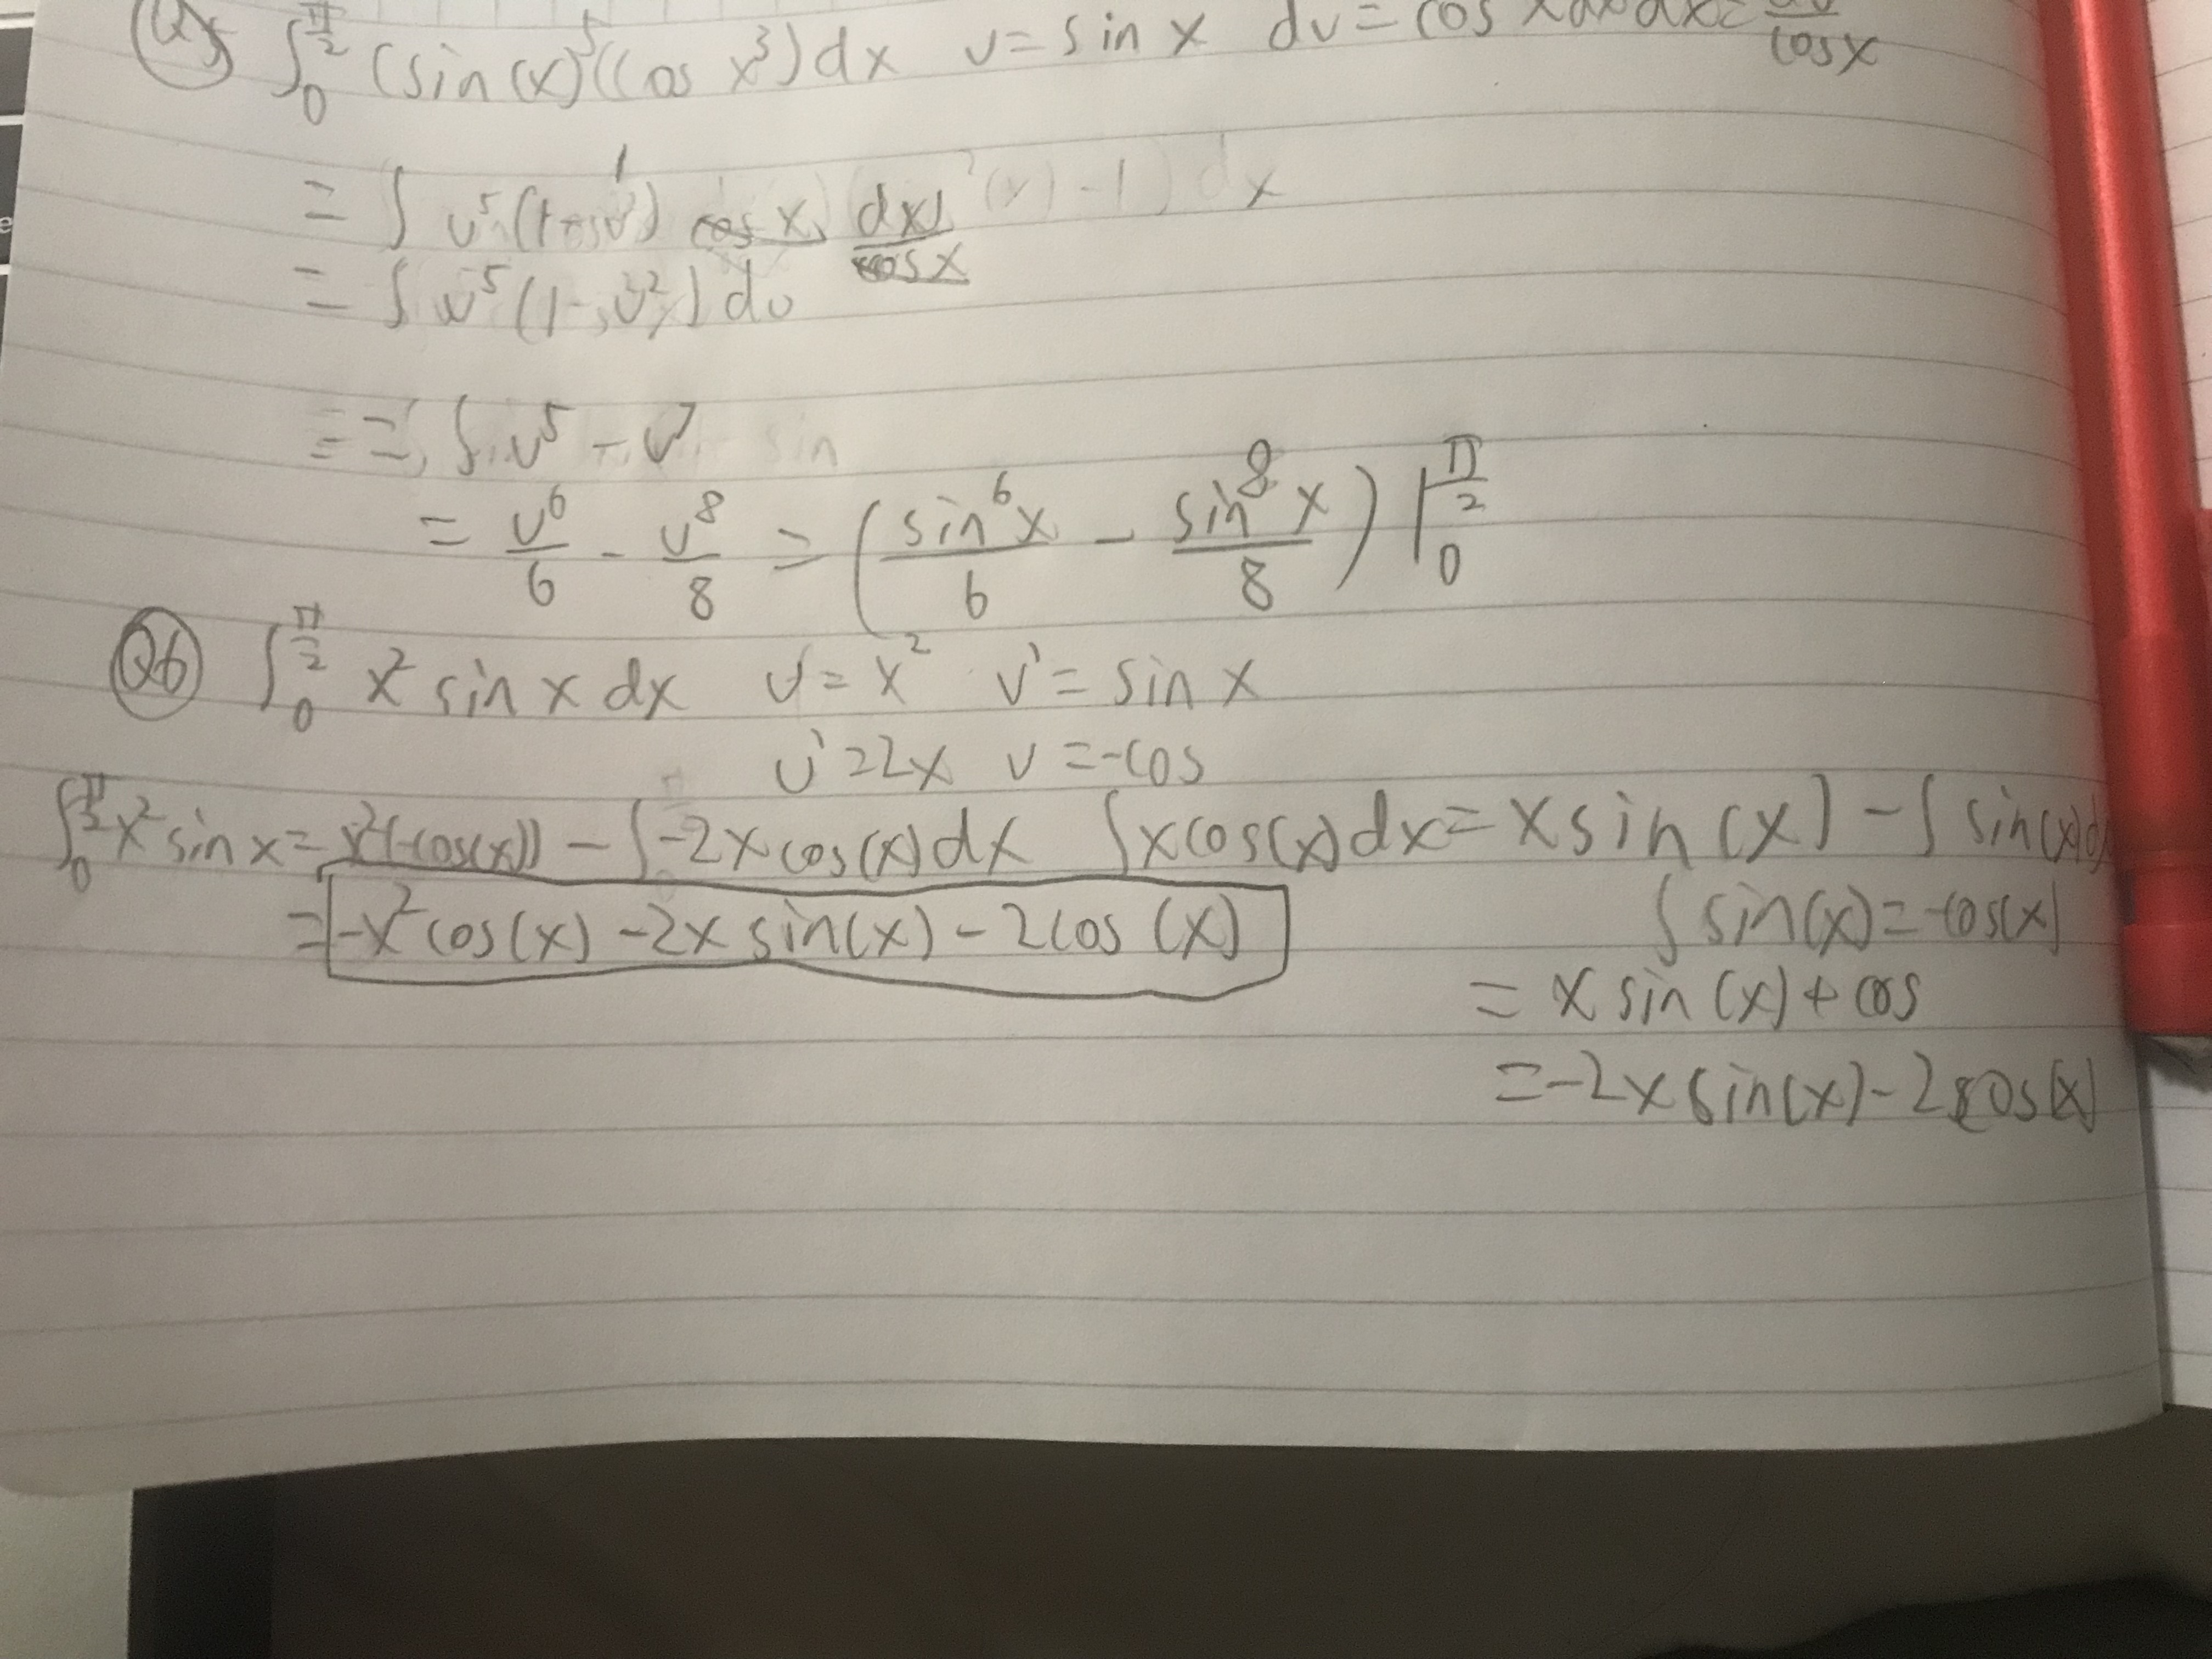 Q5 ∫₀^(π/2) (sin(x)⁵(cos x³)dx u = sin x du = cos x dx dx = du/cos x
= ∫ u⁵(1-u²) cos x dx/cos x
= ∫ u⁵(1-u²) du
= ∫ u⁵ - u⁷
= u⁶/6 - u⁸/8 = (sin⁶x/6 - sin⁸x/8) |₀^(π/2)
Q6 ∫₀^(π/2) x² sin x dx u = x² v' = sin x
u' = 2x v = -cos
∫₀^(π/2) x² sin x = x²(-cos(x)) - ∫-2x cos(x)dx ∫xcos(x)dx = x sin(x) - ∫ sin(x)d
= -x² cos(x) - 2x sin(x) - 2cos(x) ∫ sin(x) = -cos(x)
= x sin(x) + cos
= -2x sin(x) - 2cos(x)